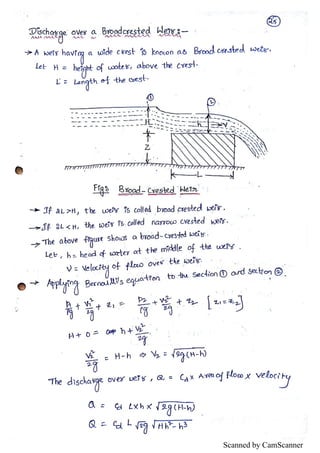 25
Discharge over a Broadcrested Weir:-
→ A weir having a wide crest is known as Broad crested weir.
Let H = height of water, above the crest.
L = Length of the crest.
① ②
H
h
Z
L
Fig: Broad-Crested Weir
→ If 2L>H, the weir is called broad crested weir.
→ If 2L<H, the weir is called narrow crested weir.
→ The above figure shows a broad-crested weir.
Let, h = head of water at the middle of the weir.
V = Velocity of flow over the weir.
→ Applying Bernoulli's equation to the section ① and section ②.
P₁/ρg + V₁²/2g + z₁ = P₂/ρg + V₂²/2g + z₂ [z₁=z₂]
H + 0 = h + V₂²/2g
V₂²/2g = H-h ⇒ V₂ = √2g(H-h)
The discharge over weir, Q = Cd x Area of flow x velocity
Q = Cd Lxh x √2g(H-h)
Q = Cd L √2g √Hh²-h³
Scanned by CamScanner